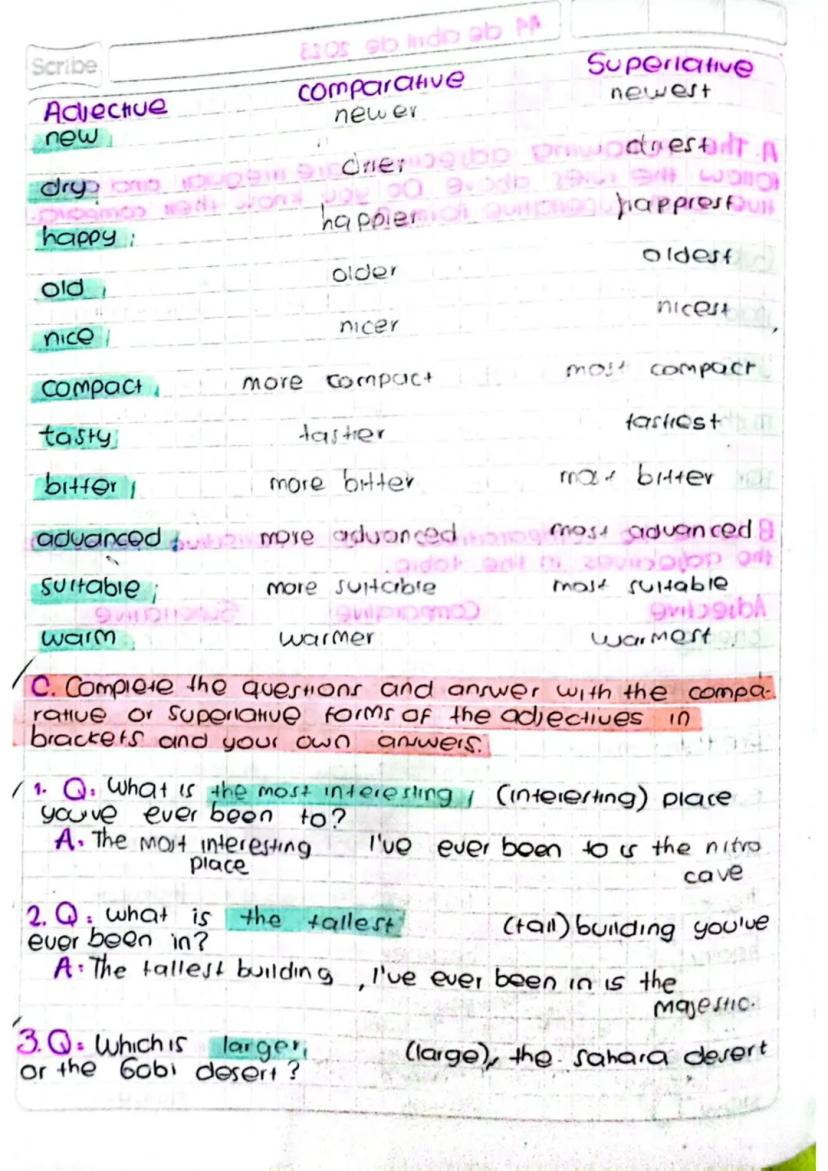 Scribe
11 de abril de 2023
Adjective comparative Superlative
new newer newest
dry drier driest
happy happier happiest
old older oldest
nice nicer nicest
compact more compact most compact
tasty tastier tastiest
bitter more bitter most bitter
advanced more advanced most advanced
suitable more suitable most suitable
warm warmer warmest
C. Complete the questions and answer with the compa-
rative or superlative forms of the adjectives in
brackets and your own answers.
1. Q: What is the most interesting (interesting) place
you've ever been to?
A: The most interesting place I've ever been to is the nitro
cave
2. Q: what is the tallest (tall) building you've
ever been in?
A: The tallest building, I've ever been in is the
majestic.
3. Q: Which is larger, (large), the sahara desert
or the Gobi desert?